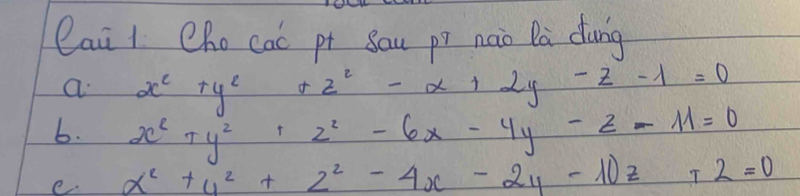 Câu 1. Cho các pt sau pt nào là đúng
a. x² + y² + z² - x + 2y - z - 1 = 0
b. x² + y² + z² - 6x - 4y - z - 11 = 0
c. x² + y² + z² - 4x - 2y - 10z + 2 = 0